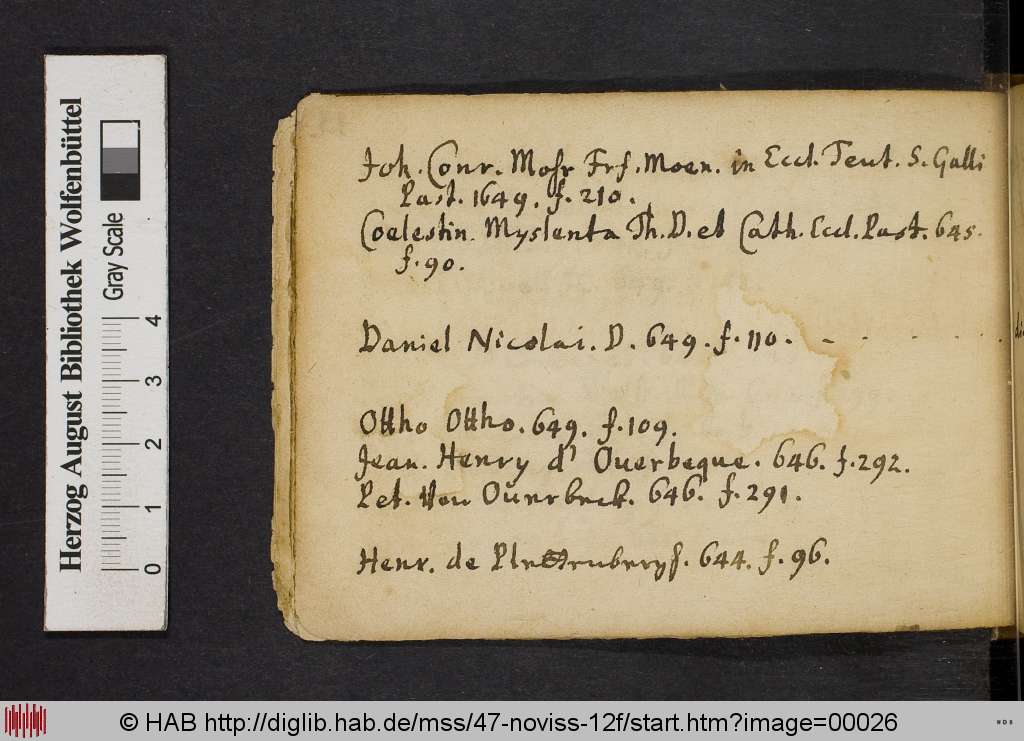 Joh. Conr. Mohr Frf. Moen. in Eccl. Teut. S. Galli
Past. 1649. f. 210.
Coelestin. Myslenta Th. D. et Cath. Eccl. Past. 645.
f. 90.
Daniel Nicolai. D. 649. f. 110.
Ottho Ottho. 649. f. 109.
Jean. Henry d' Ouerbeque. 646. f. 292.
Pet. Von Ouerbeck. 646. f. 291.
Henr. de Plettenbergh. 644. f. 96.
Herzog August Bibliothek Wolfenbüttel
Gray Scale
0 1 2 3 4
© HAB http://diglib.hab.de/mss/47-noviss-12f/start.htm?image=00026